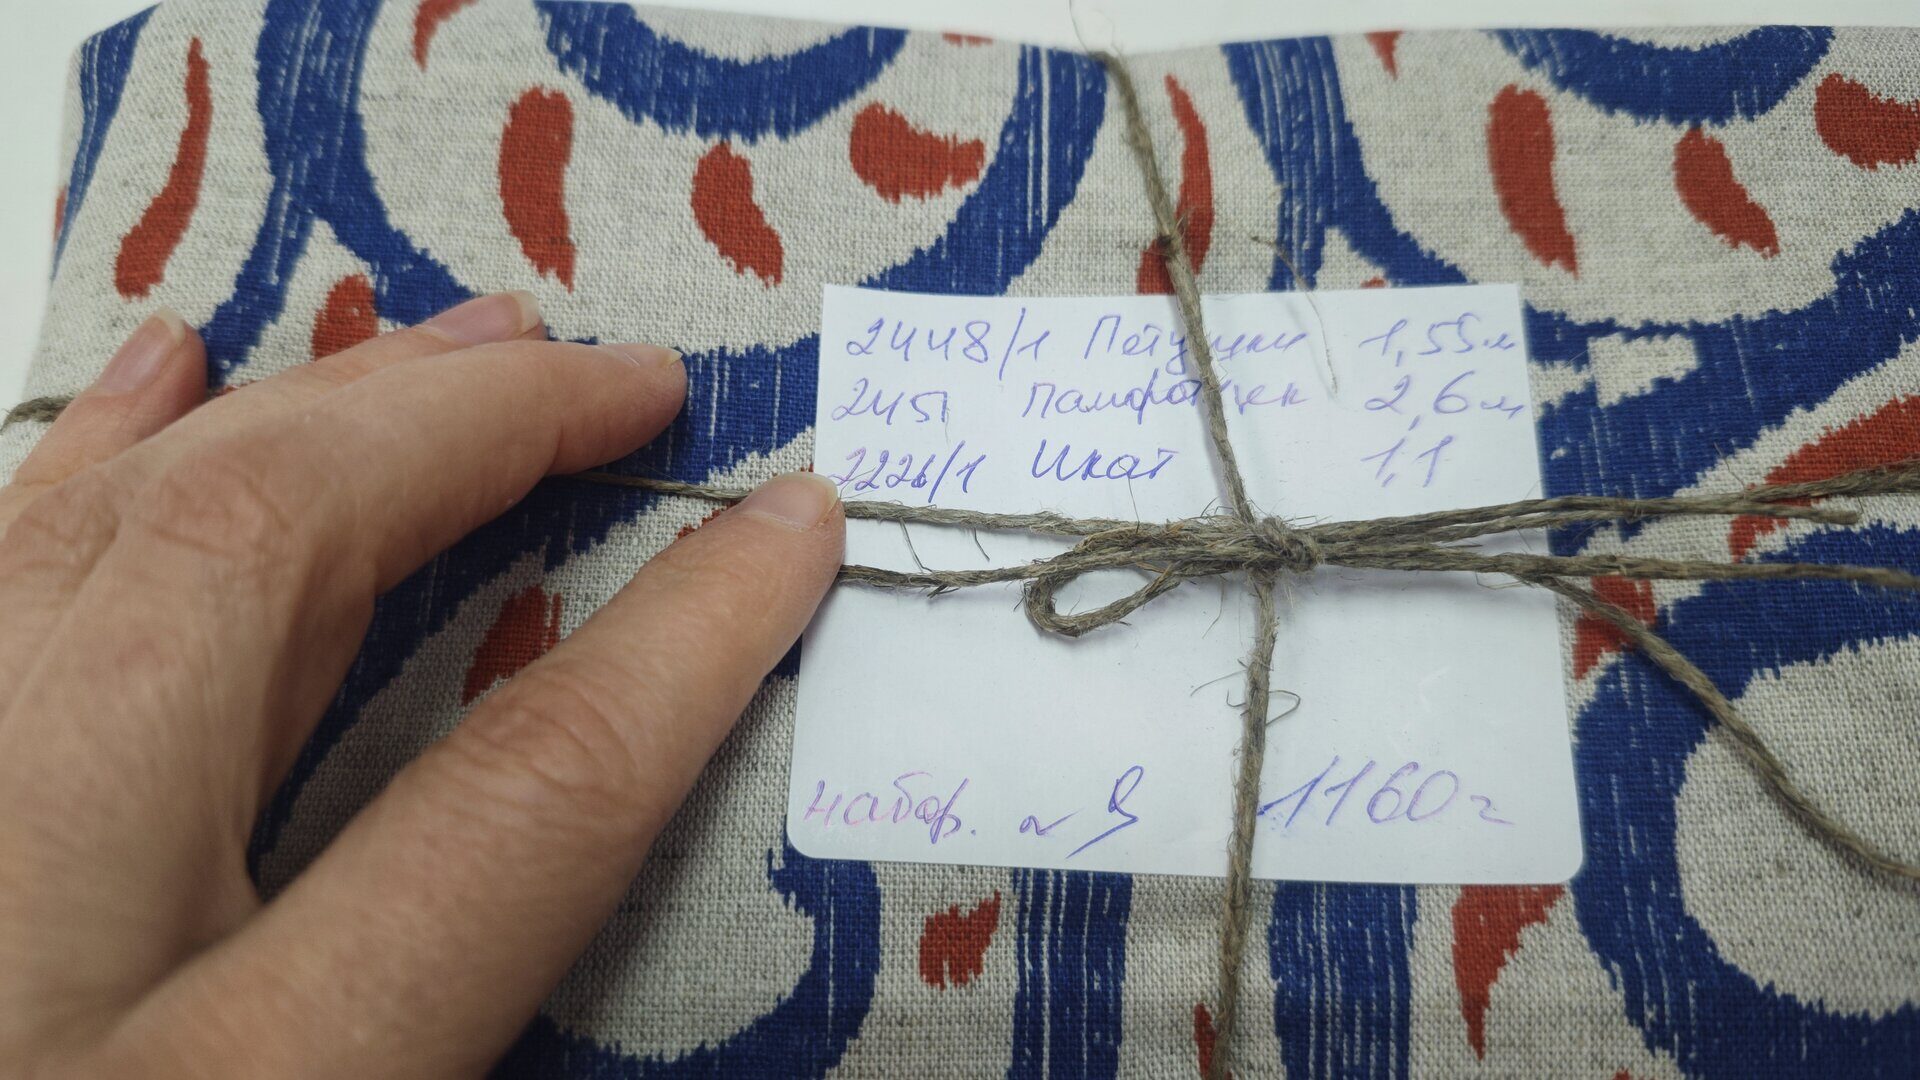 2448/1 Петушки 1,55м
2451 2,6м
2226/1 Икат 1,1
набор. 1160г